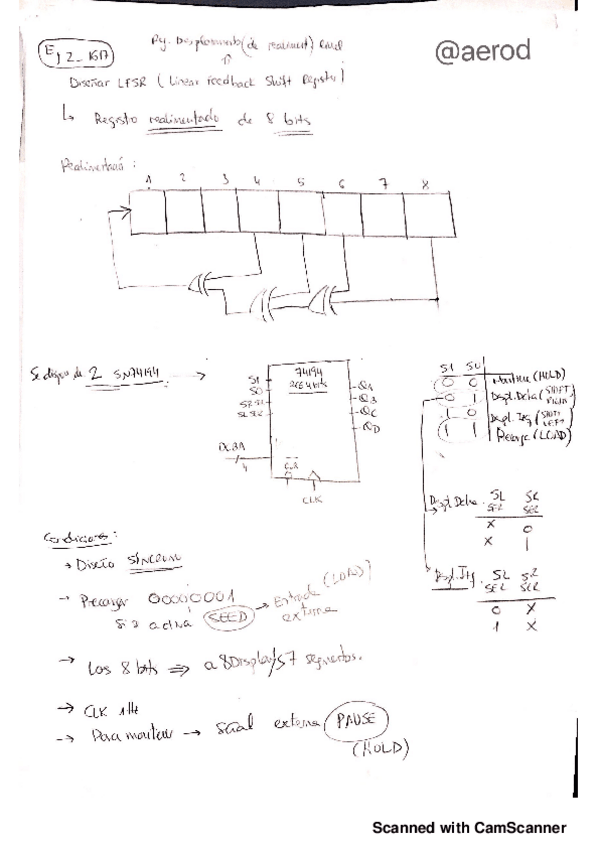 Ej 2_1617
@aerod
Diseñar LFSR (Linear feedback Shift Register)
↳ Registro realimentado de 8 bits
1 2 3 4 5 6 7 8
Se dispone de 2 SN74194 →
74194
REG 4 bits
S1
S0
SR SER
SL SER
DCBA
4
QA
QB
QC
QD
CLR
CLK
S1 S0
0 0 Mantiene (HOLD)
0 1 Despl. Dcha (SHIFT RIGHT)
1 0 Despl. Izq (SHIFT LEFT)
1 1 Precarga (LOAD)
Despl. Dcha. SL SER SR SER
X 0
X 1
Despl. Izq. SL SER SR SER
0 X
1 X
Condiciones:
→ Diseño SÍNCRONO
→ Precargar 00000001
si se activa SEED → Entrada externa (LOAD)
→ Los 8 bits ⇒ a 8 Displays 7 segmentos.
→ CLK 1Hz
→ Para mantener → señal externa PAUSE
(HOLD)
Scanned with CamScanner